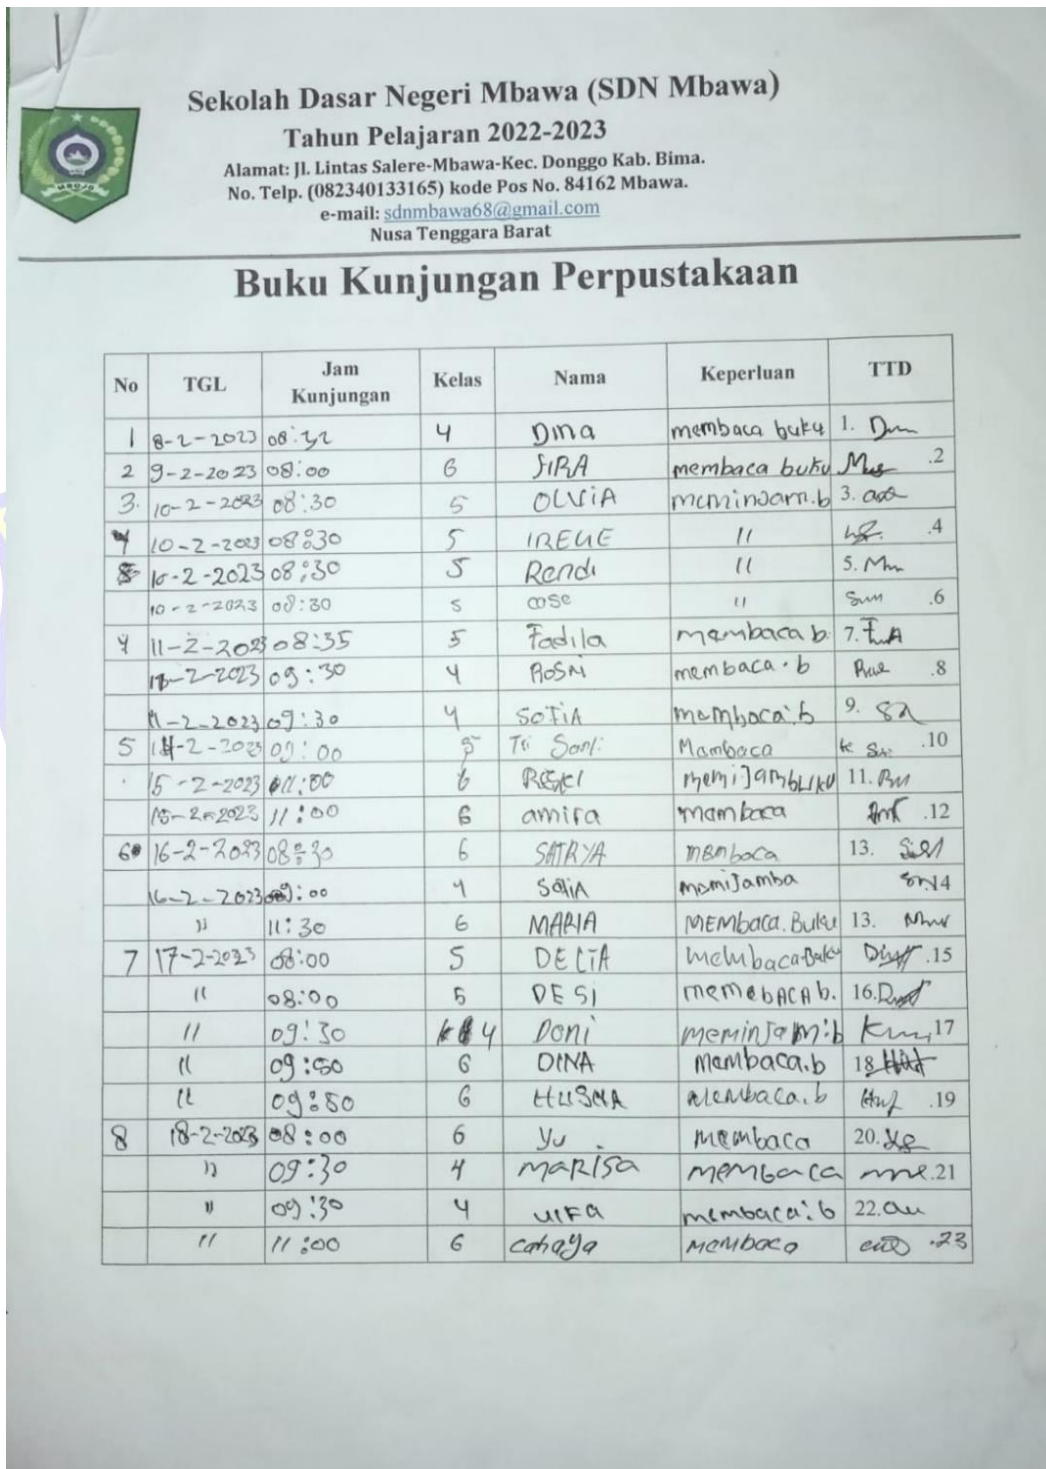 Sekolah Dasar Negeri Mbawa (SDN Mbawa)
Tahun Pelajaran 2022-2023
Alamat: Jl. Lintas Salere-Mbawa-Kec. Donggo Kab. Bima.
No. Telp. (082340133165) kode Pos No. 84162 Mbawa.
e-mail: sdnmbawa68@gmail.com
Nusa Tenggara Barat
Buku Kunjungan Perpustakaan
No TGL Jam Kunjungan Kelas Nama Keperluan TTD
1 8-2-2023 4 Dina membaca buku 1.
2 9-2-2023 08:00 6 membaca buku .2
3. 10-2-2023 08:30 5 OLViA 3.
4 10-2-2023 08:30 5 " .4
10-2-2023 08:30 5 Rendi " 5.
10-2-2023 08:30 5 " .6
4 11-2-2023 08:35 5 Fadila membaca b. 7.
09:30 4 ROSNi membaca.b .8
11-2-2023 09:30 4 SOFIA membaca.b 9.
5 09:00 5 Mambaca .10
15-2-2023 11:00 6 11.
11:00 6 amira mambaca .12
6 16-2-2023 08:30 6 SATRYA membaca 13.
16-2-2023 :00 4 momiJamba 14
" 11:30 6 MARIA MEMbaca.Buku 13.
7 17-2-2023 08:00 5 .15
" 08:00 5 DESi memebACA b. 16.
" 09:30 4 Doni meminJam:b 17
" 09:50 6 DINA Mambaca.b 18
" 09:50 6 HUSNA Membaca.b .19
8 18-2-2023 08:00 6 Yu membaca 20.
" 09:30 4 MARiSa MEMbaca .21
" 09:30 4 ULFa membaca:b 22.
" 11:00 6 Cahaya Membaca .23